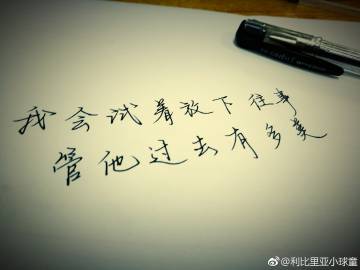 我会试着放下往事
管他过去有多美
@利比里亚小球童